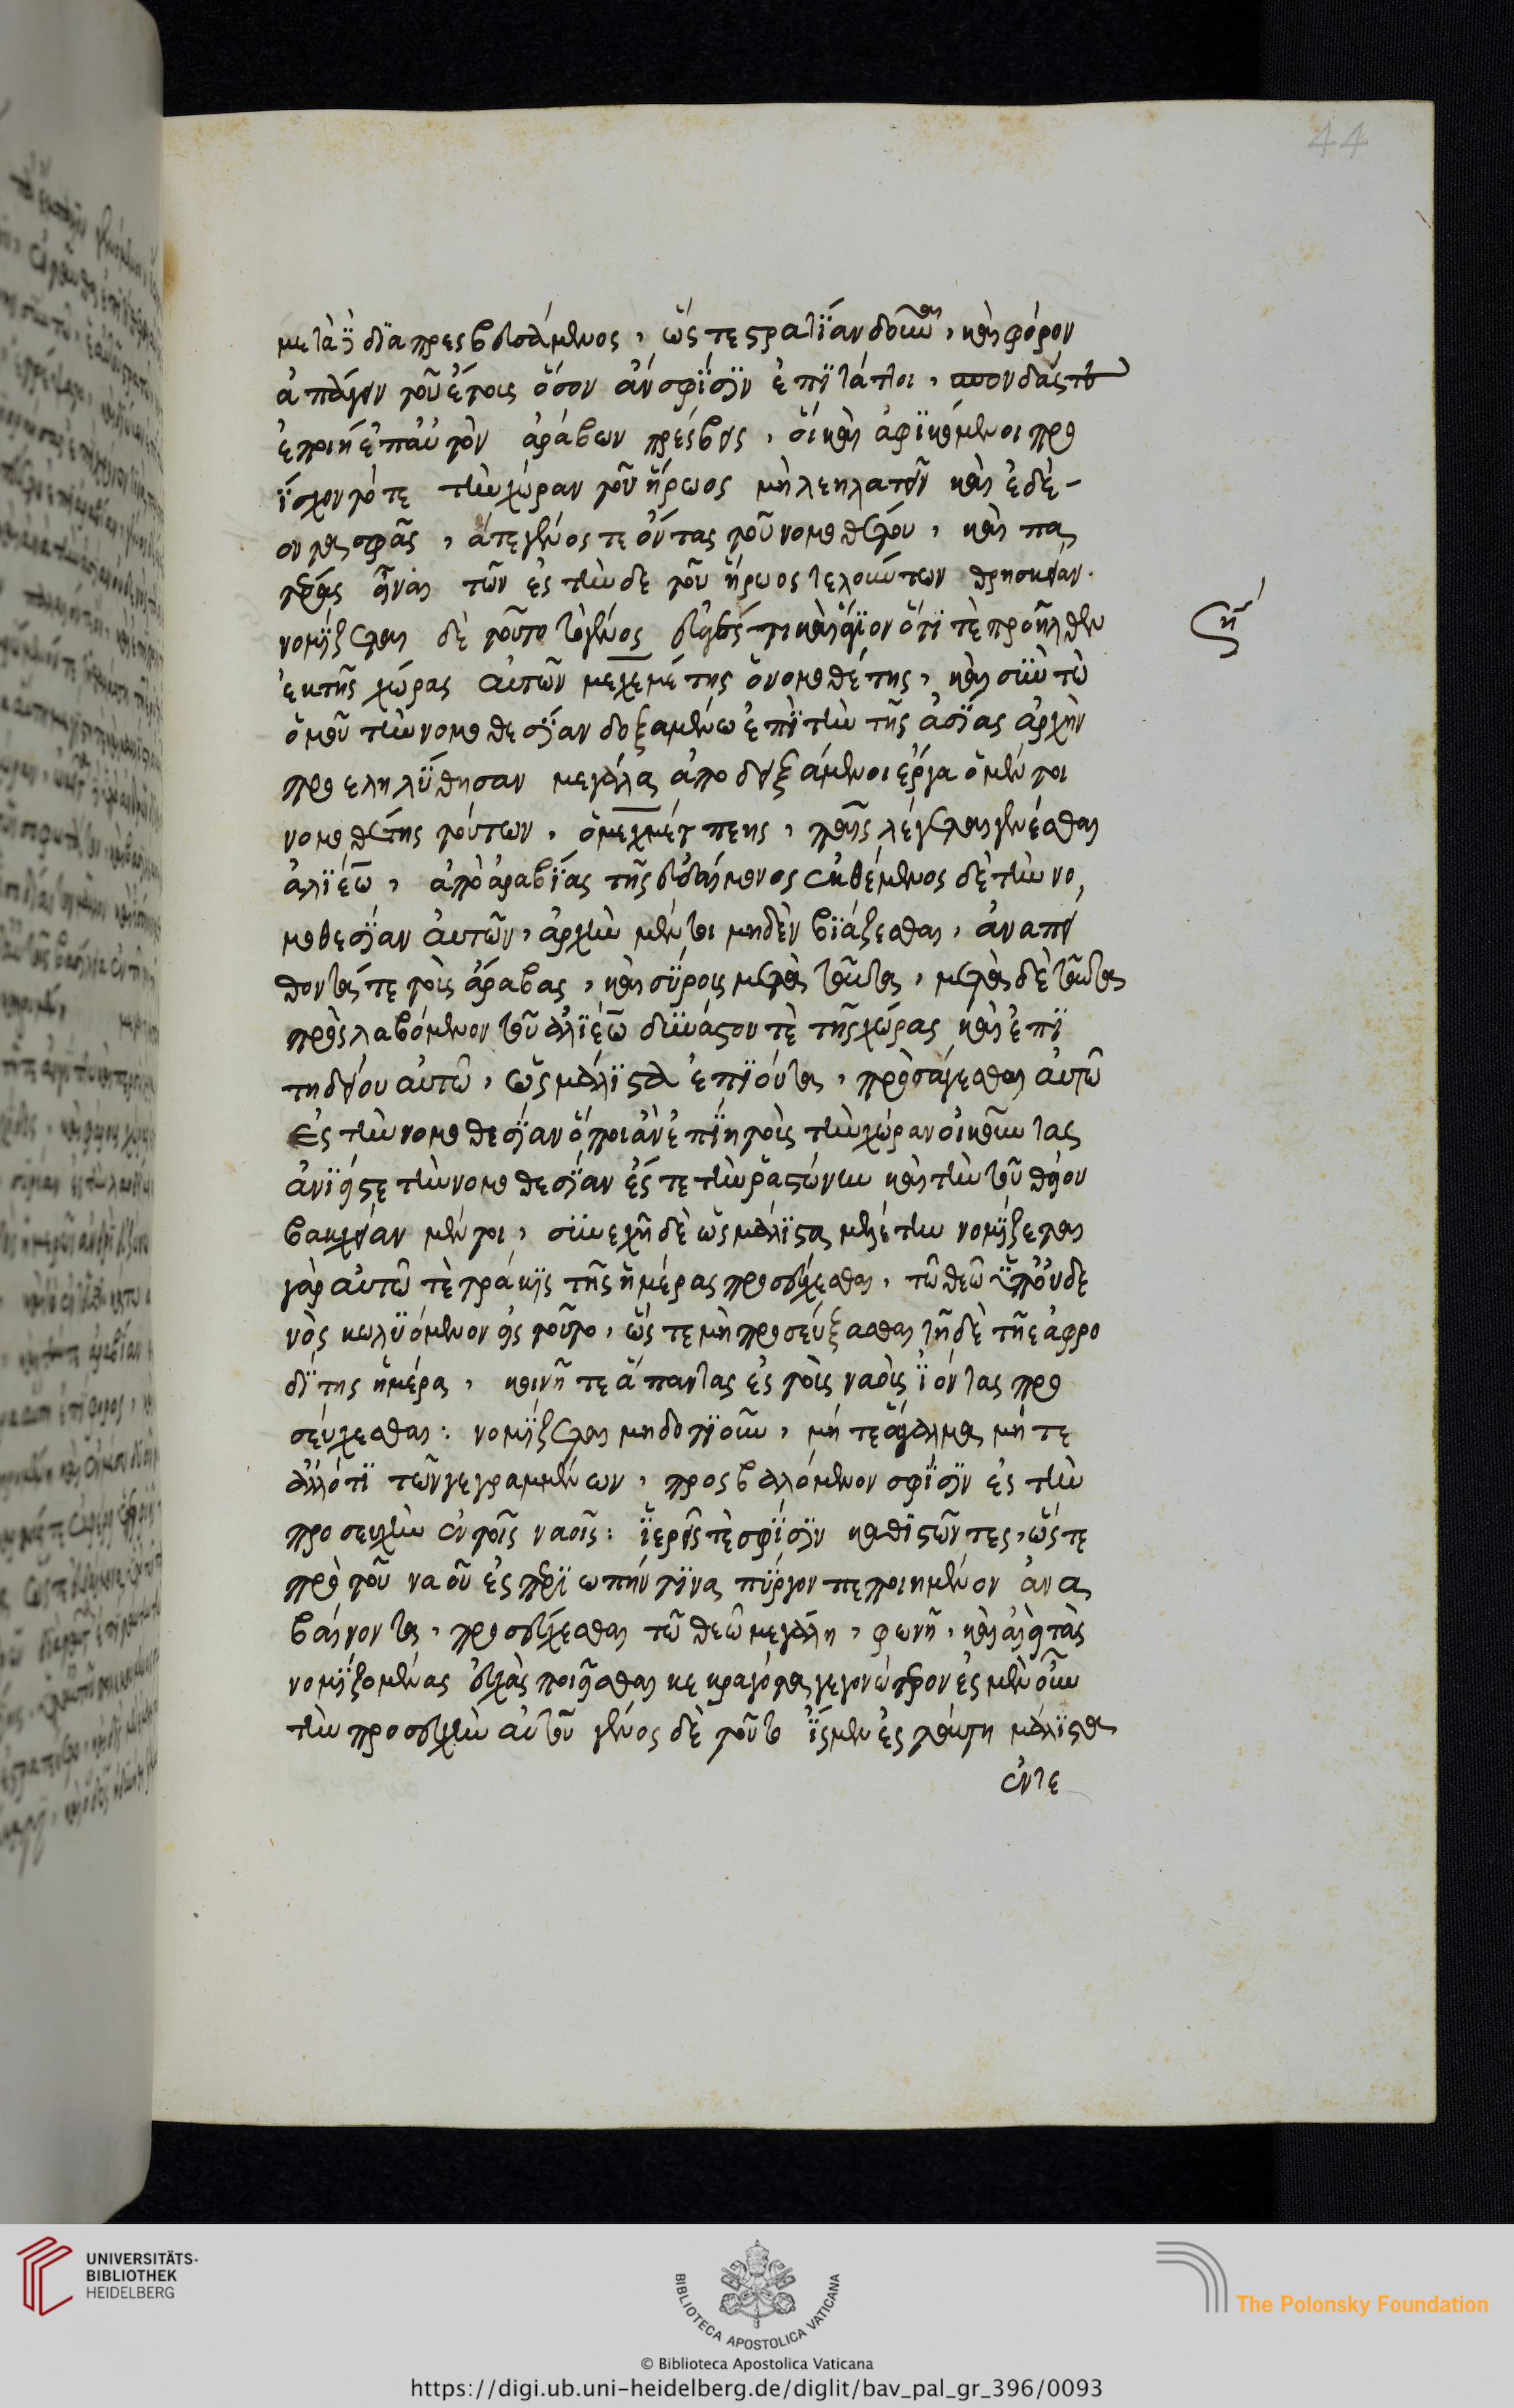 44
μετὰ δὲ διαπρεσβευσάμενος, ὥς τε στρατιὰν δοῦναι, καὶ φόρον
ἀπάγειν τοῦ ἔτους ὅσον ἂν σφίσιν ἐπιτάττοι, σπονδάς τε
ἐποιή ἐπ' αὐτὸν ἀράβων πρέσβεις, οἳ καὶ ἀφικόμενοι προ
ΐσχοντό τε τὴν χώραν τοῦ ἥρωος μὴ λεηλατεῖν καὶ ἐδέ-
οντο σφᾶς, ἅτε γένος τε ὄντας τοῦ νομοθέτου, καὶ πα
τέρας εἶναι τῶν ἐς τήνδε τοῦ ἥρωος τελούντων θρησκείαν.
νομίζεται δὲ τοῦτο τὸ γένος εὐαγές τι καὶ ἅγιον ὅτι τὲ προῆλθεν
ἐκ τῆς χώρας αὐτῶν μεχεμέτης ὁ νομοθέτης, καὶ σὺν τῷ
ὁμοῦ τὴν νομοθεσίαν δεξαμένῳ ἐπὶ τὴν τῆς ἀσίας ἀρχὴν
προεληλύθησαν μεγάλα ἀποδειξάμενοι ἔργα ὁ μέντοι
νομοθέτης τούτων, ὁ μεχμέτ πεης, παῖς λέγεται γενέσθαι
ἀλιέω, ἀπὸ ἀραβίας τῆς εὐδαίμονος ἐκθέμενος δὲ τὴν νο
μοθεσίαν αὐτῶν, ἀρχὴν μέντοι μηδὲν βιάζεσθαι, ἀναπεί
θοντά τε τοὺς ἄραβας, καὶ σύρους μετὰ ταῦτα, μετὰ δὲ ταῦτα
προσλαβόμενον τοῦ ἀλιέω δυνάστου τὲ τῆς χώρας καὶ ἐπι
τηδείου αὐτῷ, ὡς μάλιστα ἐπιόντα, προσάγεσθαι αὐτῷ
ἐς τὴν νομοθεσίαν ὅποι ἂν ἐπίῃ τοὺς τὴν χώραν οἰκοῦντας
ἀνιεῖσε τὴν νομοθεσίαν ἔς τε τὴν ῥαστώνην καὶ τὴν τοῦ θείου
βακχείαν μέντοι, συνεχῆ δὲ ὡς μάλιστα μελέτην νομίζεται
γὰρ αὐτῷ τετράκις τῆς ἡμέρας προσεύχεσθαι, τῷ θεῷ ὑπ' οὐδε
νὸς κωλυόμενον εἰς τοῦτο, ὥς τε μὴ προσεύξασθαι τῇ δὲ τῆς ἀφρο
δίτης ἡμέρα, κοινῇ τε ἅπαντας ἐς τοὺς ναοὺς ἰόντας προ
σεύχεσθαι: νομίζεται μηδοτιοῦν, μήτε ἄγαλμα μήτε
ἄλλό τι τῶν γεγραμμένων, προσβαλλόμενον σφίσιν ἐς τὴν
προσευχὴν ἐν τοῖς ναοῖς: ἱερεῖς τὲ σφίσιν καθιστῶντες, ὥς τε
πρὸ τοῦ ναοῦ ἐς περιωπήν τινα πύργον πεποιημένον ἀνα
βαίνοντα, προσεύχεσθαι τῷ θεῷ μεγάλη, φωνῇ, καὶ ἀεὶ τὰς
νομιζομένας εὐχὰς ποιεῖσθαι κεκραγότα γεγονώτερον ἐς μὲν οὖν
τὴν προσευχὴν αὐτοῦ γένος δὲ τοῦτο ἴσμεν ἐς ταύτη μάλιστα
ἐντε
UNIVERSITÄTS-
BIBLIOTHEK
HEIDELBERG
BIBLIOTECA APOSTOLICA VATICANA
The Polonsky Foundation
© Biblioteca Apostolica Vaticana
https://digi.ub.uni-heidelberg.de/diglit/bav_pal_gr_396/0093